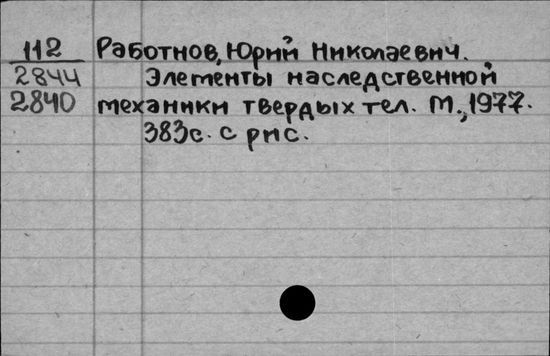 112 Работнов, Юрий Николаевич.
2844 Элементы наследственной
2840 механики твердых тел. М., 1977.
383с. с рис.